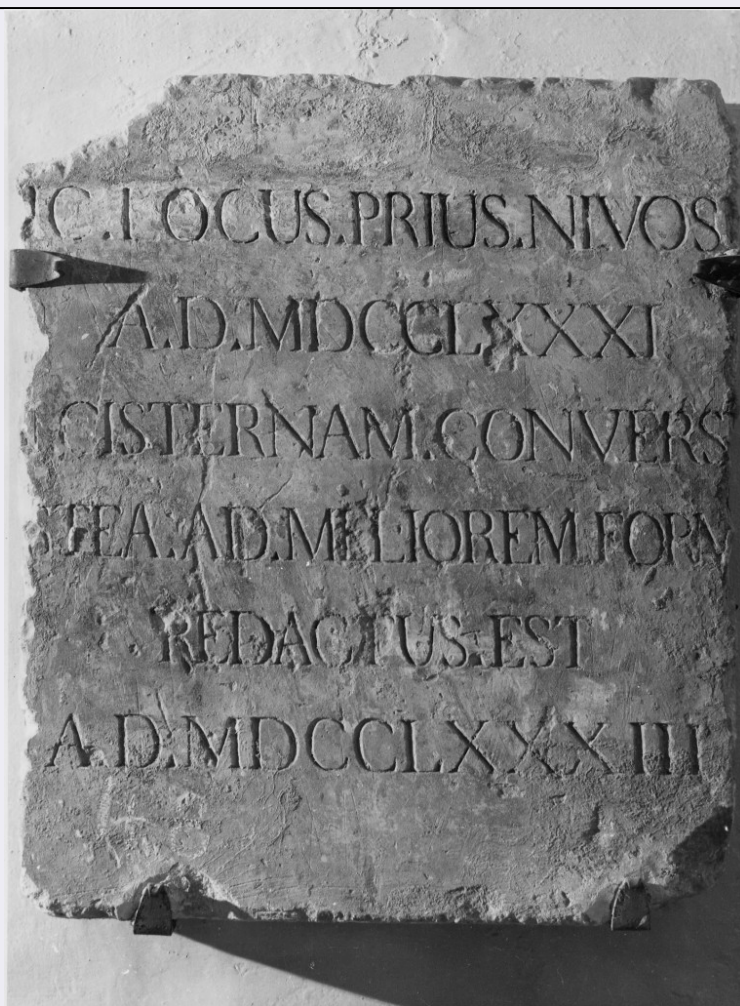 IC.LOCUS.PRIUS.NIVOS
A.D.MDCCLXXXI
CISTERNAM.CONVERS
STEA.AD.MELIOREM.FORM
REDACTUS.EST
A.D.MDCCLXXXIII